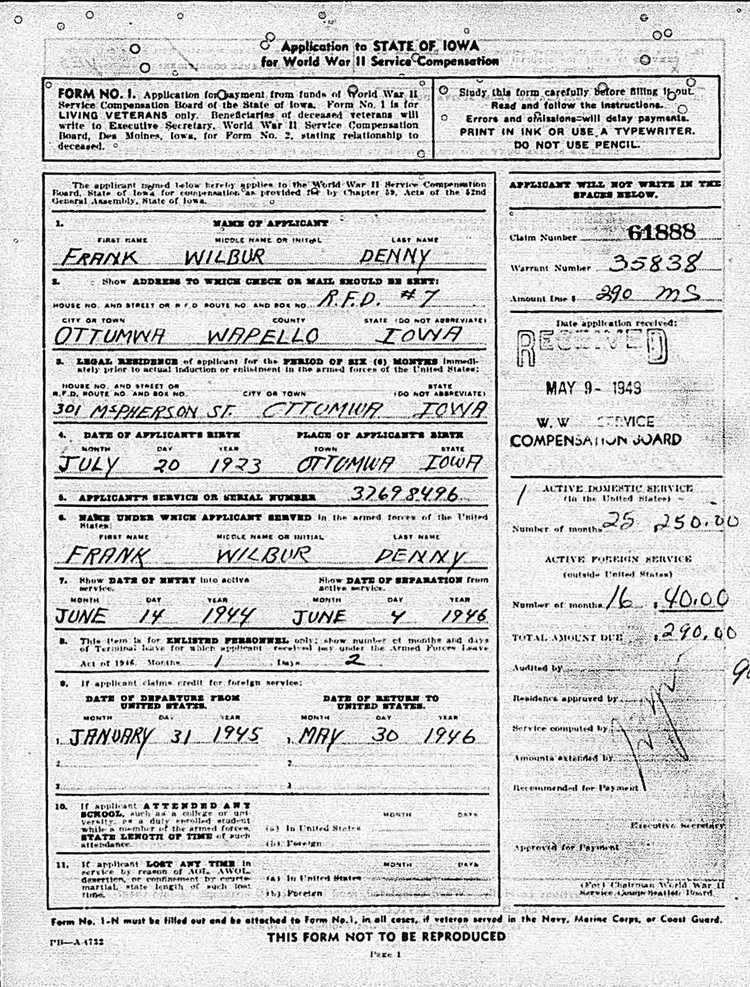 Application to STATE OF IOWA
for World War II Service Compensation
FORM NO. 1. Application for payment from funds of World War II
Service Compensation Board of the State of Iowa. Form No. 1 is for
LIVING VETERANS only. Beneficiaries of deceased veterans will
write to Executive Secretary, World War II Service Compensation
Board, Des Moines, Iowa, for Form No. 2, stating relationship to
deceased.
Study this form carefully before filling it out.
Read and follow the instructions.
Errors and omissions will delay payments.
PRINT IN INK OR USE A TYPEWRITER.
DO NOT USE PENCIL.
The applicant named below hereby applies to the World War II Service Compensation
Board, State of Iowa for compensation as provided for by Chapter 59, Acts of the 52nd
General Assembly, State of Iowa.
1. NAME OF APPLICANT
FIRST NAME MIDDLE NAME OR INITIAL LAST NAME
FRANK WILBUR DENNY
2. Show ADDRESS TO WHICH CHECK OR MAIL SHOULD BE SENT:
HOUSE NO. AND STREET OR R.F.D. ROUTE NO. AND BOX NO. R.F.D. #7
CITY OR TOWN COUNTY STATE (DO NOT ABBREVIATE)
OTTUMWA WAPELLO IOWA
3. LEGAL RESIDENCE of applicant for the PERIOD OF SIX (6) MONTHS immedi-
ately prior to actual induction or enlistment in the armed forces of the United States:
HOUSE NO. AND STREET OR
R.F.D. ROUTE NO. AND BOX NO. CITY OR TOWN STATE (DO NOT ABBREVIATE)
301 McPHERSON ST. OTTUMWA IOWA
4. DATE OF APPLICANT'S BIRTH PLACE OF APPLICANT'S BIRTH
MONTH DAY YEAR TOWN STATE
JULY 20 1923 OTTUMWA IOWA
5. APPLICANT'S SERVICE OR SERIAL NUMBER 37698496
6. NAME UNDER WHICH APPLICANT SERVED in the armed forces of the United
States:
FIRST NAME MIDDLE NAME OR INITIAL LAST NAME
FRANK WILBUR DENNY
7. Show DATE OF ENTRY into active
service.
Show DATE OF SEPARATION from
active service.
MONTH DAY YEAR MONTH DAY YEAR
JUNE 14 1944 JUNE 4 1946
8. This item is for ENLISTED PERSONNEL only; show number of months and days
of Terminal leave for which applicant received pay under the Armed Forces Leave
Act of 1946. Months 1 Days 2
9. If applicant claims credit for foreign service:
DATE OF DEPARTURE FROM
UNITED STATES.
DATE OF RETURN TO
UNITED STATES.
MONTH DAY YEAR MONTH DAY YEAR
1. JANUARY 31 1945 1. MAY 30 1946
2. 2.
3. 3.
10. If applicant ATTENDED ANY
SCHOOL, such as a college or uni-
versity, as a duly enrolled student
while a member of the armed forces,
STATE LENGTH OF TIME of such
attendance.
MONTH DAYS
(a) In United States
(b) Foreign
11. If applicant LOST ANY TIME in
service by reason of AOL, AWOL,
desertion, or confinement by court-
martial, state length of such lost
time.
MONTH DAYS
(a) In United States
(b) Foreign
APPLICANT WILL NOT WRITE IN THE
SPACES BELOW.
Claim Number 61888
Warrant Number 35838
Amount Due $ 290 MS
Date application received:
RECEIVED
MAY 9- 1949
W. W. SERVICE
COMPENSATION BOARD
1 ACTIVE DOMESTIC SERVICE
(In the United States)
Number of months 25 $ 250.00
ACTIVE FOREIGN SERVICE
(outside United States)
Number of months 16 $ 40.00
TOTAL AMOUNT DUE $ 290.00
Audited by
Residence approved by
Service computed by
Amounts extended by
Recommended for Payment
Executive Secretary
Approved for Payment
(For) Chairman World War II
Service Compensation Board.
Form No. 1-N must be filled out and be attached to Form No.1, in all cases, if veteran served in the Navy, Marine Corps, or Coast Guard.
PB—A4722
THIS FORM NOT TO BE REPRODUCED
Page 1